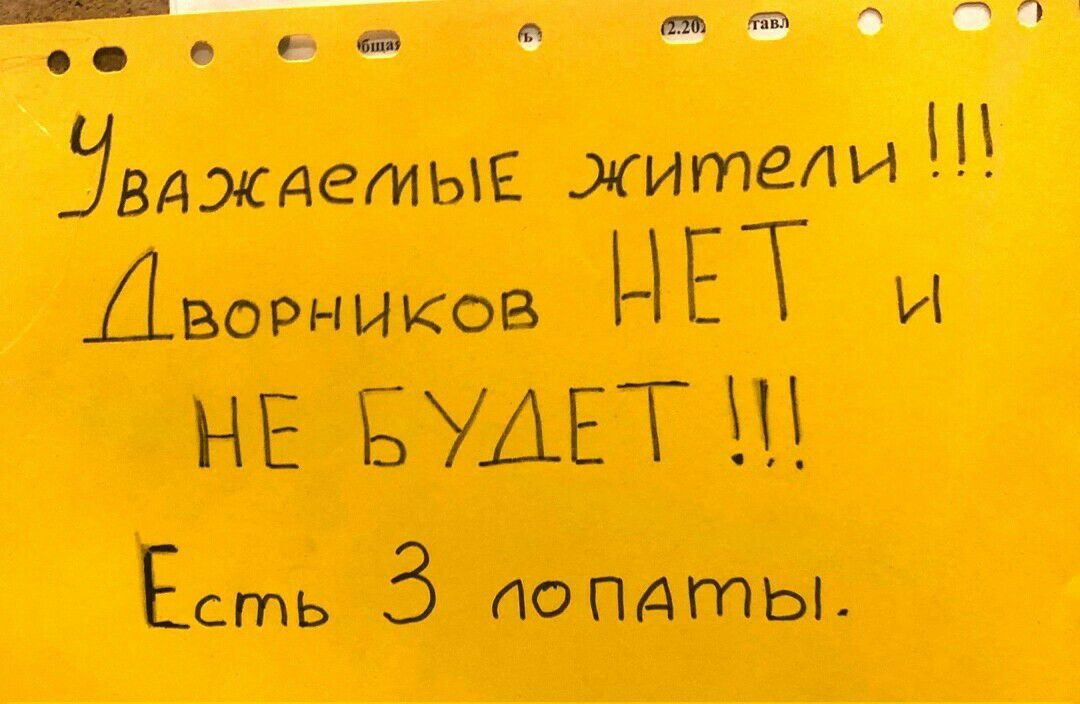 бщая ь : (2.20) тавл
Уважаемые жители!!!
Дворников НЕТ и
НЕ БУДЕТ!!!
Есть 3 лопаты.